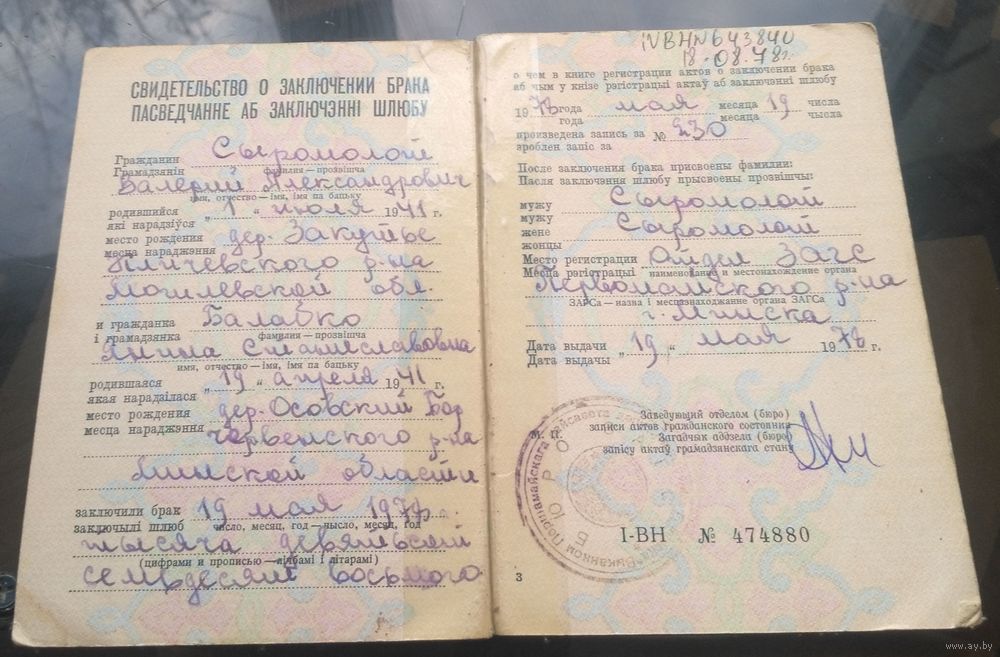 СВИДЕТЕЛЬСТВО О ЗАКЛЮЧЕНИИ БРАКА
ПАСВЕДЧАННЕ АБ ЗАКЛЮЧЭННІ ШЛЮБУ
Гражданин Сыромолот
Грамадзянін фамилия — прозвішча
Валерий Александрович
имя, отчество — імя, імя па бацьку
родившийся „1“ июля 1941 г.
які нарадзіўся
место рождения дер. Закутье
месца нараджэння
Кличевского р-на
Могилевской обл
и гражданка Балабко
і грамадзянка фамилия — прозвішча
Янина Станиславовна
имя, отчество — імя, імя па бацьку
родившаяся „19“ апреля 1941 г.
якая нарадзілася
место рождения дер. Осовский Бор
месца нараджэння
Червенского р-на
Минской области
заключили брак 19 мая 1978 г.
заключылі шлюб число, месяц, год — чысло, месяц, год
тысяча девятьсот
(цифрами и прописью — лічбамі і літарамі)
семьдесят восьмого
18.08.78г.
о чем в книге регистрации актов о заключении брака
аб чым у кнізе рэгістрацыі актаў аб заключэнні шлюбу
1978 года мая месяца 19 числа
года месяца чысла
произведена запись за № 230
зроблен запіс за
После заключения брака присвоены фамилии:
Пасля заключэння шлюбу прысвоены прозвішчы:
мужу Сыромолот
мужу
жене Сыромолот
жонцы
Место регистрации Отдел Загс
Месца рэгістрацыі наименование и местонахождение органа
Первомайского р-на
ЗАГСа — назва і месцазнаходжанне органа ЗАГСа
г. Минска
Дата выдачи „19“ мая 1978 г.
Дата выдачы
Заведующий отделом (бюро)
М. П. записи актов гражданского состояния
Загадчык аддзела (бюро)
запісу актаў грамадзянскага стану
І-ВН № 474880
3
www.ay.by